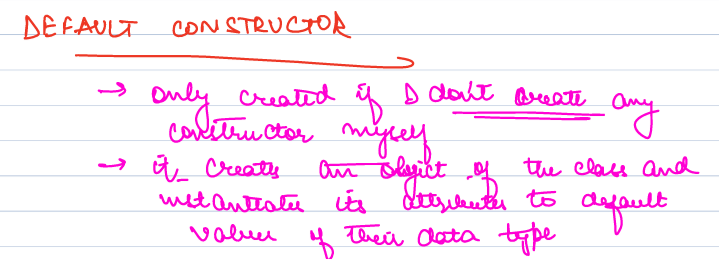 DEFAULT CONSTRUCTOR
→ only created if I don't create any
constructor myself
→ it creates an object of the class and
instantiates its attributes to default
values of their data type